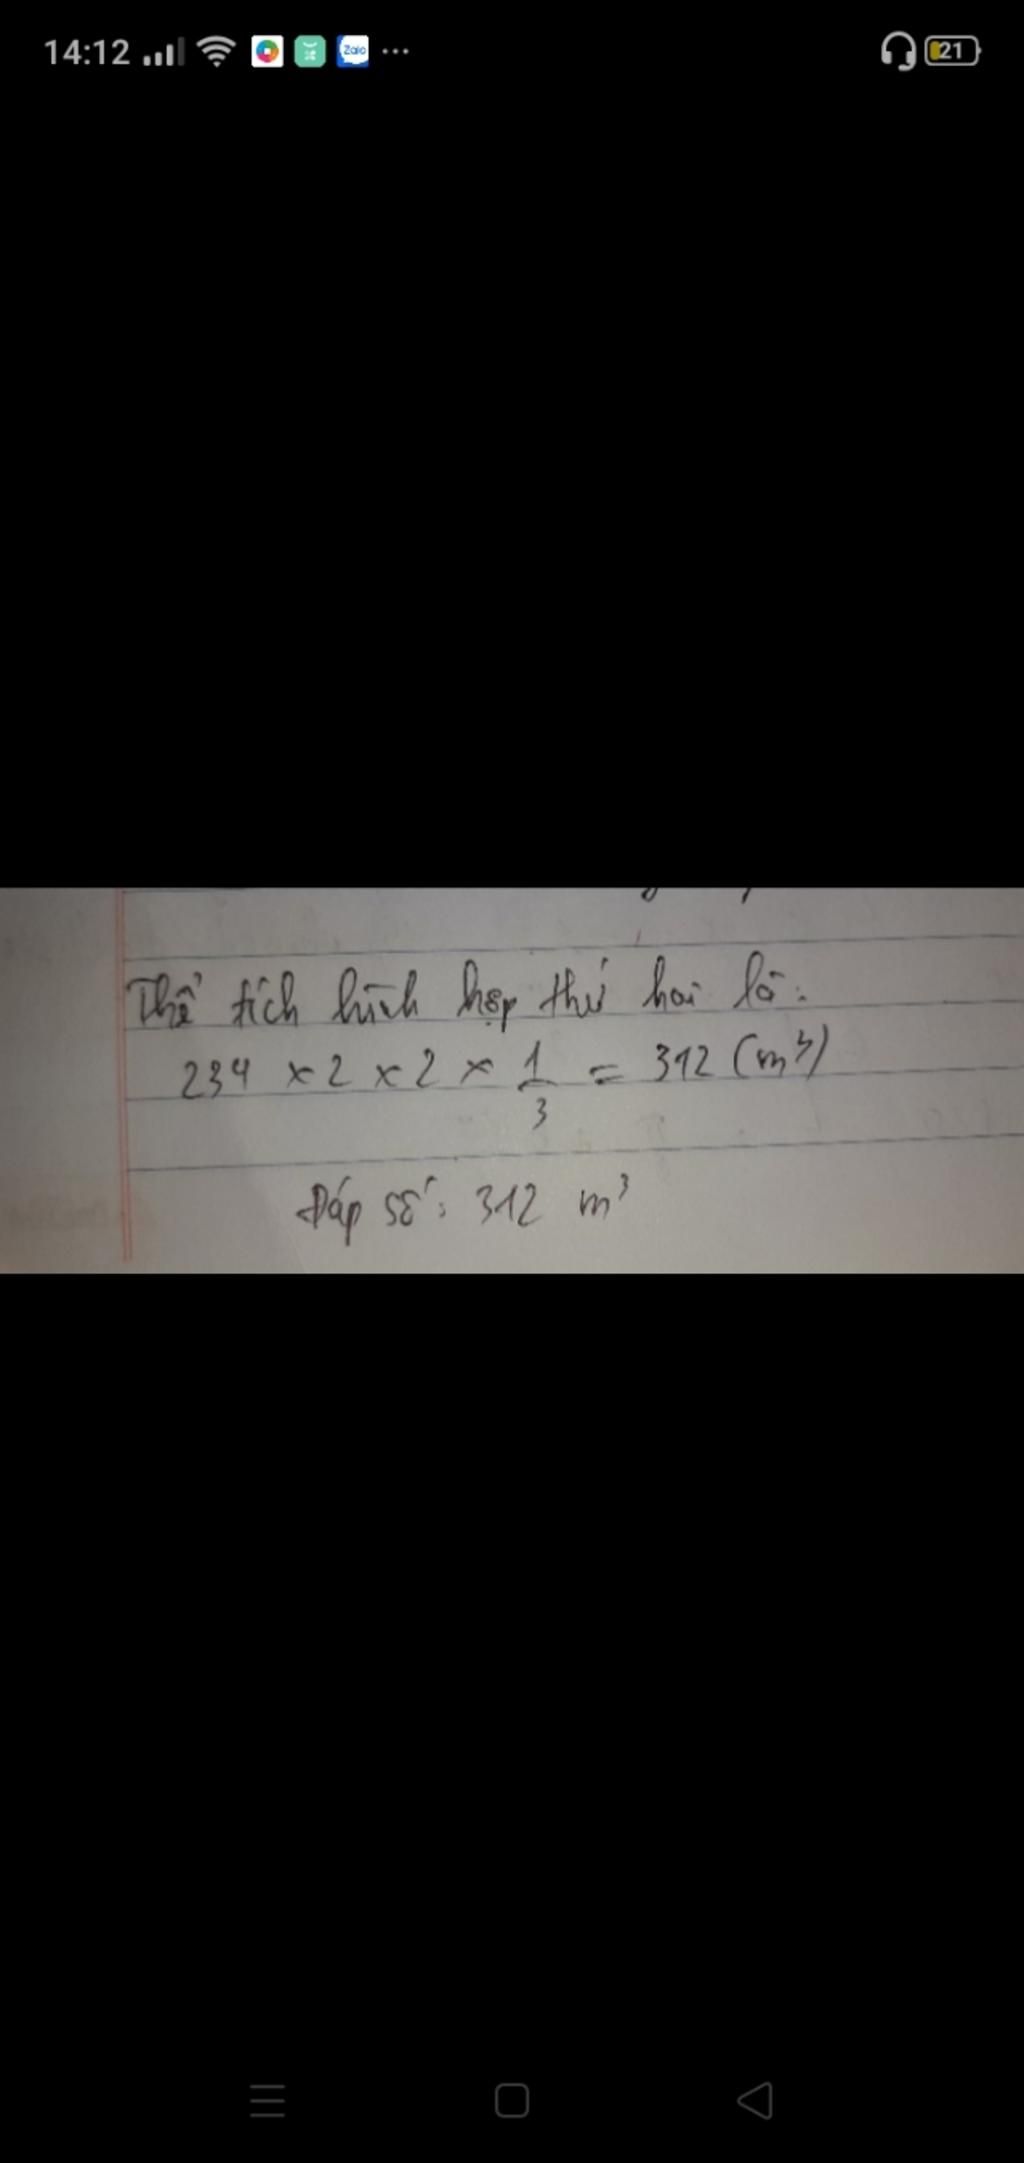 14:12
Zalo
21
Thể tích hình hộp thứ hai là:
234 × 2 × 2 × 1/3 = 312 (m³)
Đáp số: 312 m³